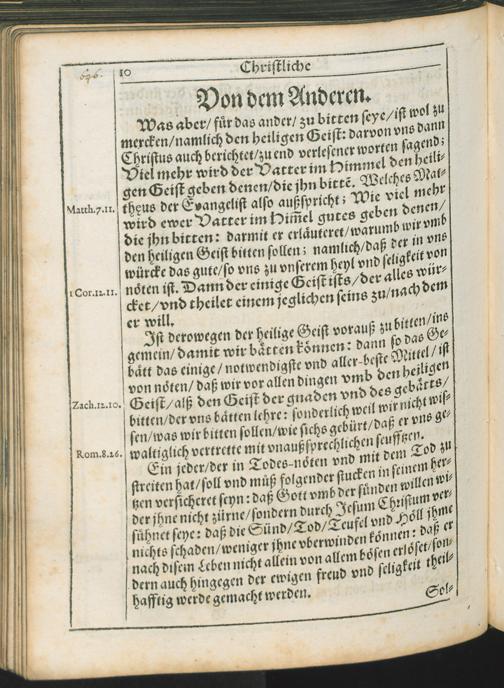 646.
10 Christliche
Von dem Anderen.
Was aber/ für das ander/ zu bitten seye/ ist wol zu
mercken/ namlich den heiligen Geist: darvon vns dann
Christus auch berichtet/ zu end verlesener worten sagend;
Viel mehr wird der Vatter im Himmel den heili-
gen Geist geben denen/ die jhn bittē. Welches Mat-
Matth.7.11. theus der Evangelist also außspricht; Wie viel mehr
wird ewer Vatter im Him̃el gutes geben denen/
die jhn bitten: darmit er erläuteret/ warumb wir vmb
den heiligen Geist bitten sollen; namlich/ daß der in vns
würcke das gute/ so vns zu vnserem heyl vnd seligkeit von
1 Cor.12.11. nöten ist. Dann der einige Geist ists/ der alles wür-
cket/ vnd theilet einem jeglichen seins zu/ nach dem
er will.
Ist derowegen der heilige Geist vorauß zu bitten/ ins
gemein/ damit wir bätten können: dann so das Ge-
bätt das einige/ notwendigste vnd aller-beste Mittel/ ist
von nöten/ daß wir vor allen dingen vmb den heiligen
Zach.12.10. Geist/ alß den Geist der gnaden vnd des gebätts/
bitten/ der vns bätten lehre: sonderlich weil wir nicht wis-
sen/ was wir bitten sollen/ wie sichs gebürt/ daß er vns ge-
Rom.8.26. waltiglich vertrette mit vnaußsprechlichen seufftzen.
Ein jeder/ der in Todes-nöten vnd mit dem Tod zu
streiten hat/ soll vnd müß folgender stucken in seinem her-
tzen versicheret seyn: daß Gott vmb der sünden willen wi-
der jhne nicht zürne/ sondern durch Jesum Christum ver-
sühnet seye: daß die Sünd/ Tod/ Teufel vnd Höll jhme
nichts schaden/ weniger jhne vberwinden können: daß er
nach disem Leben nicht allein von allem bösen erlöset/ son-
dern auch hingegen der ewigen freud vnd seligkeit theil-
hafftig werde gemacht werden.
Sol-